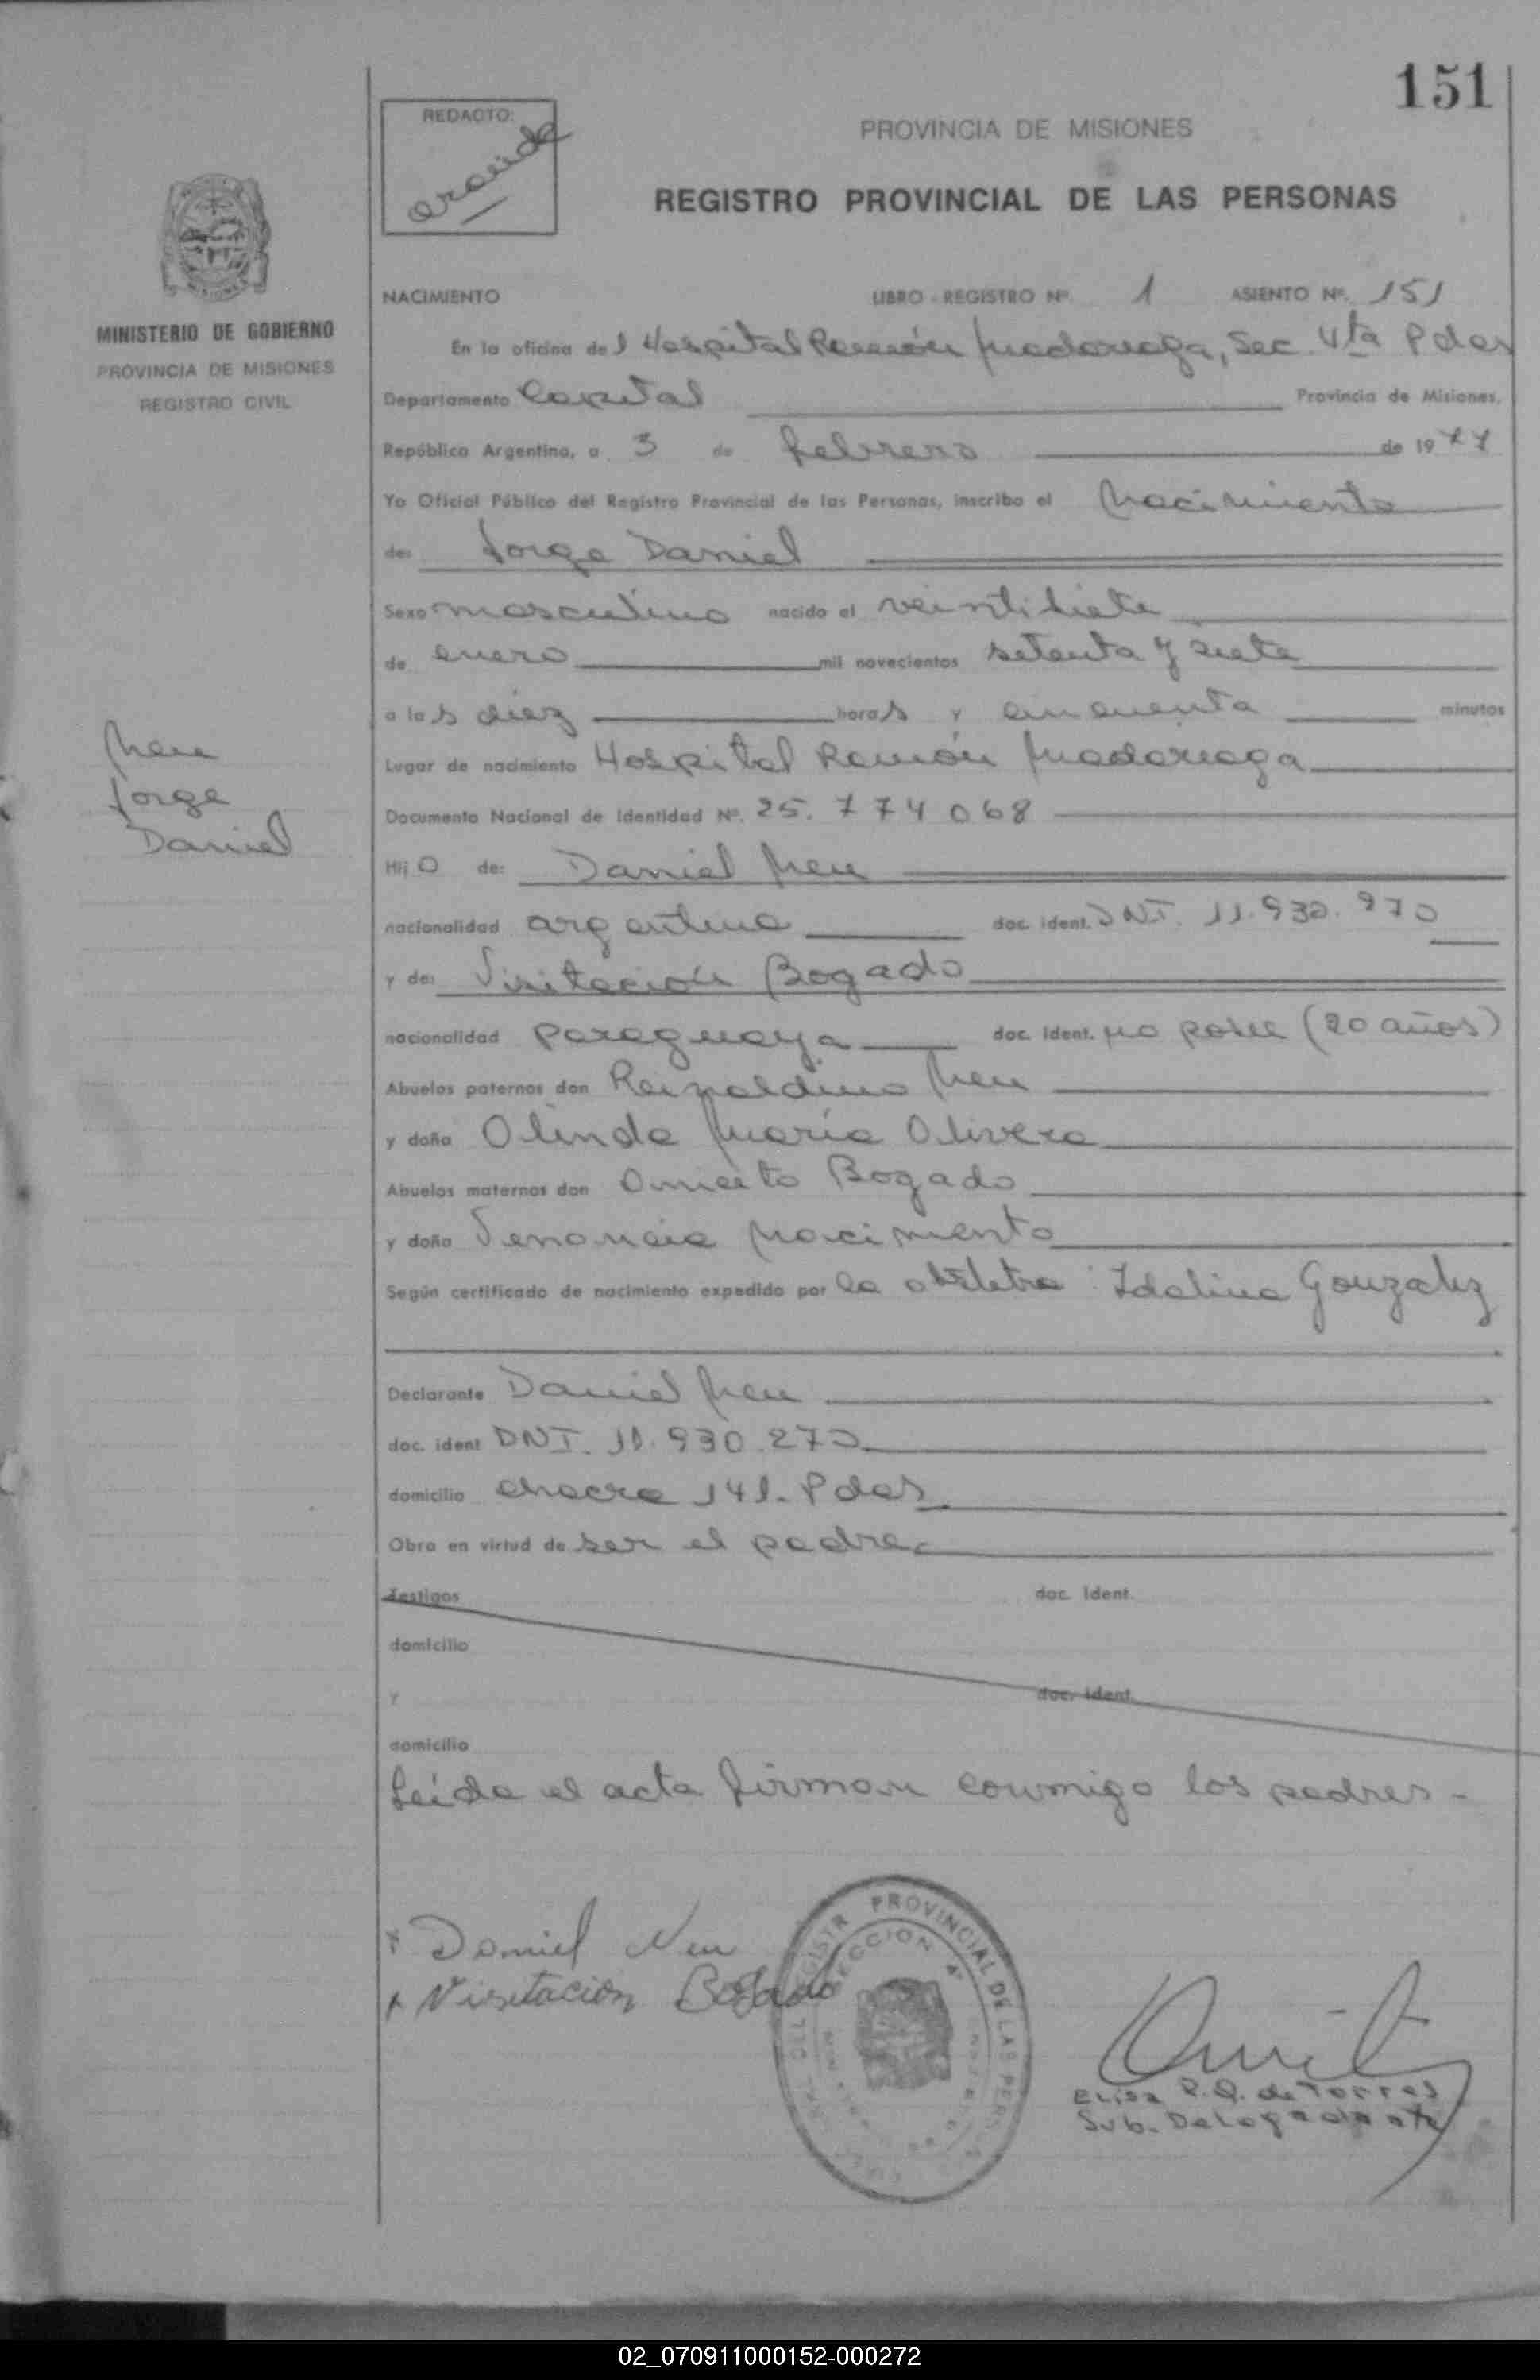 151
REDACTO:
PROVINCIA DE MISIONES
REGISTRO PROVINCIAL DE LAS PERSONAS
MINISTERIO DE GOBIERNO
PROVINCIA DE MISIONES
REGISTRO CIVIL
NACIMIENTO LIBRO - REGISTRO Nº. 1 ASIENTO Nº. 151
En la oficina del Hospital Ramón Madariaga, Sec. 4ta Pdas
Departamento Capital Provincia de Misiones,
República Argentina, a 3 de febrero de 1977
Yo Oficial Público del Registro Provincial de las Personas, inscribo el Nacimiento
de: Jorge Daniel
Sexo masculino nacido el veintisiete
de enero mil novecientos setenta y siete
a las diez horas y cincuenta minutos
Neu
Jorge
Daniel
Lugar de nacimiento Hospital Ramón Madariaga
Documento Nacional de Identidad Nº. 25.774068
Hijo de: Daniel Neu
nacionalidad argentina doc. ident. DNI. 11.930.970
y de: Visitación Bogado
nacionalidad paraguaya doc. Ident. no posee (20 años)
Abuelos paternos don Reinaldino Neu
y doña Olinda María Olivera
Abuelos maternos don Bogado
y doña Venancia Nacimiento
Según certificado de nacimiento expedido por la obstetra Idalina Gonzalez
Declarante Daniel Neu
doc. ident DNI. 11.930.270
domicilio chacra 141. Pdas
Obra en virtud de ser el padre
testigos doc. Ident.
domicilio
y doc. Ident.
domicilio
Leída el acta firman conmigo los padres -
x Daniel Neu
x Visitación Bogado
PROVINCIAL DE LAS PERS
SECCION 4ª
Elisa R. Q. de Torres
Sub. Delegada
02_070911000152-000272